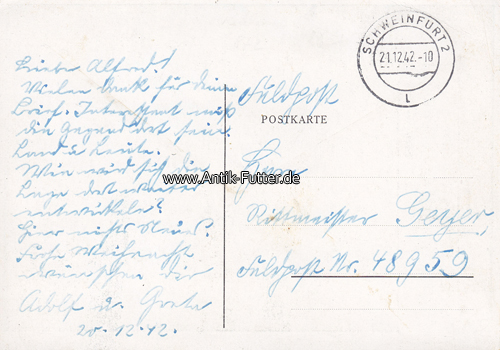 Lieber Alfred!
Vielen Dank für deinen
Brief. Interessant muß
die Gegend dort sein.
Land u. Leute.
Wie wird sich die
Lage dort weiter
entwickeln?
Hier nichts Neues.
Frohe Weihnacht
wünschen dir
Adolf u. Greta
20.12.42.
SCHWEINFURT 2
21.12.42.-10
L
Feldpost
POSTKARTE
Herrn
Rittmeister Geyer,
Feldpost Nr. 48959
www.Antik-Futter.de